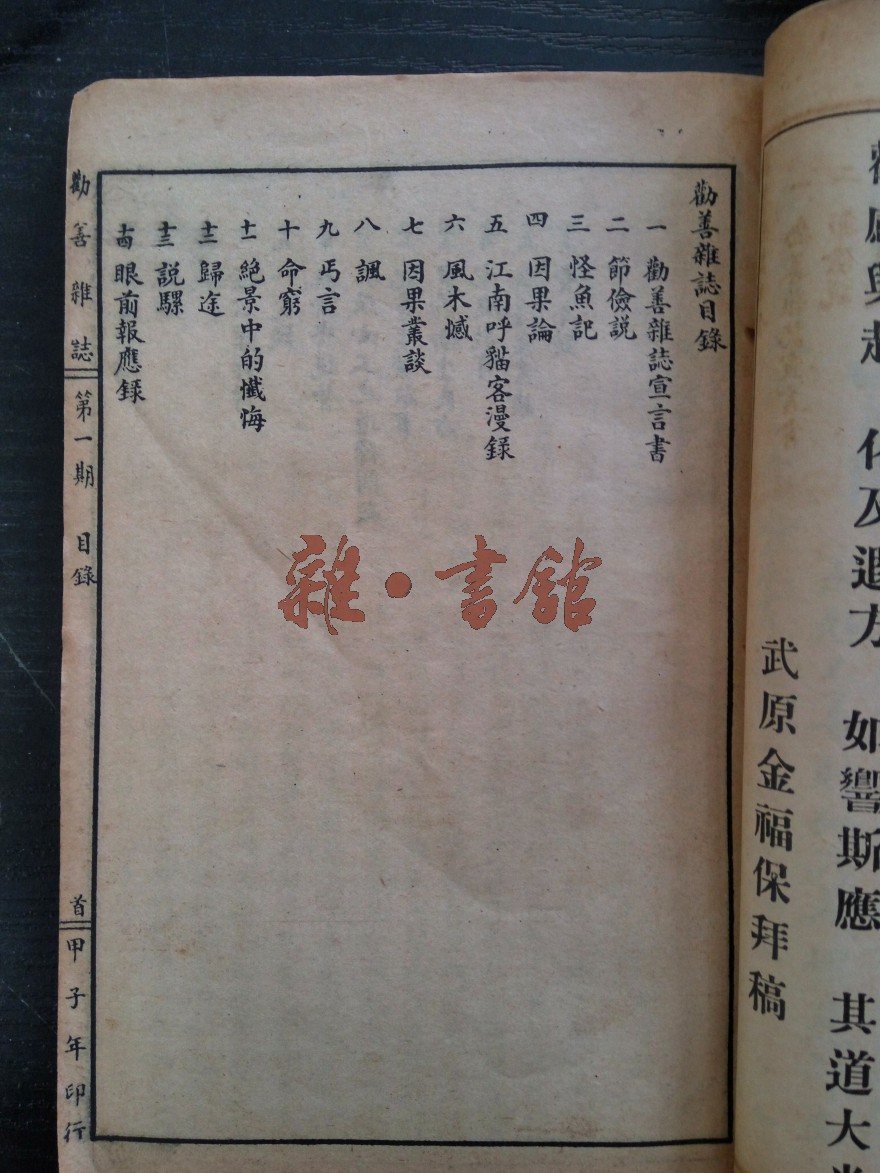 化及遐方 如響斯應 其道大
武原金福保拜稿
勸善雜誌目錄
一 勸善雜誌宣言書
二 節儉説
三 怪魚記
四 因果論
五 江南呼貓客漫錄
六 風木憾
七 因果叢談
八 諷
九 丐言
十 命窮
十一 絕景中的懺悔
十二 歸途
十三 説騾
十四 眼前報應錄
勸善雜誌 第一期 目錄 首 甲子年印行
雜·書館